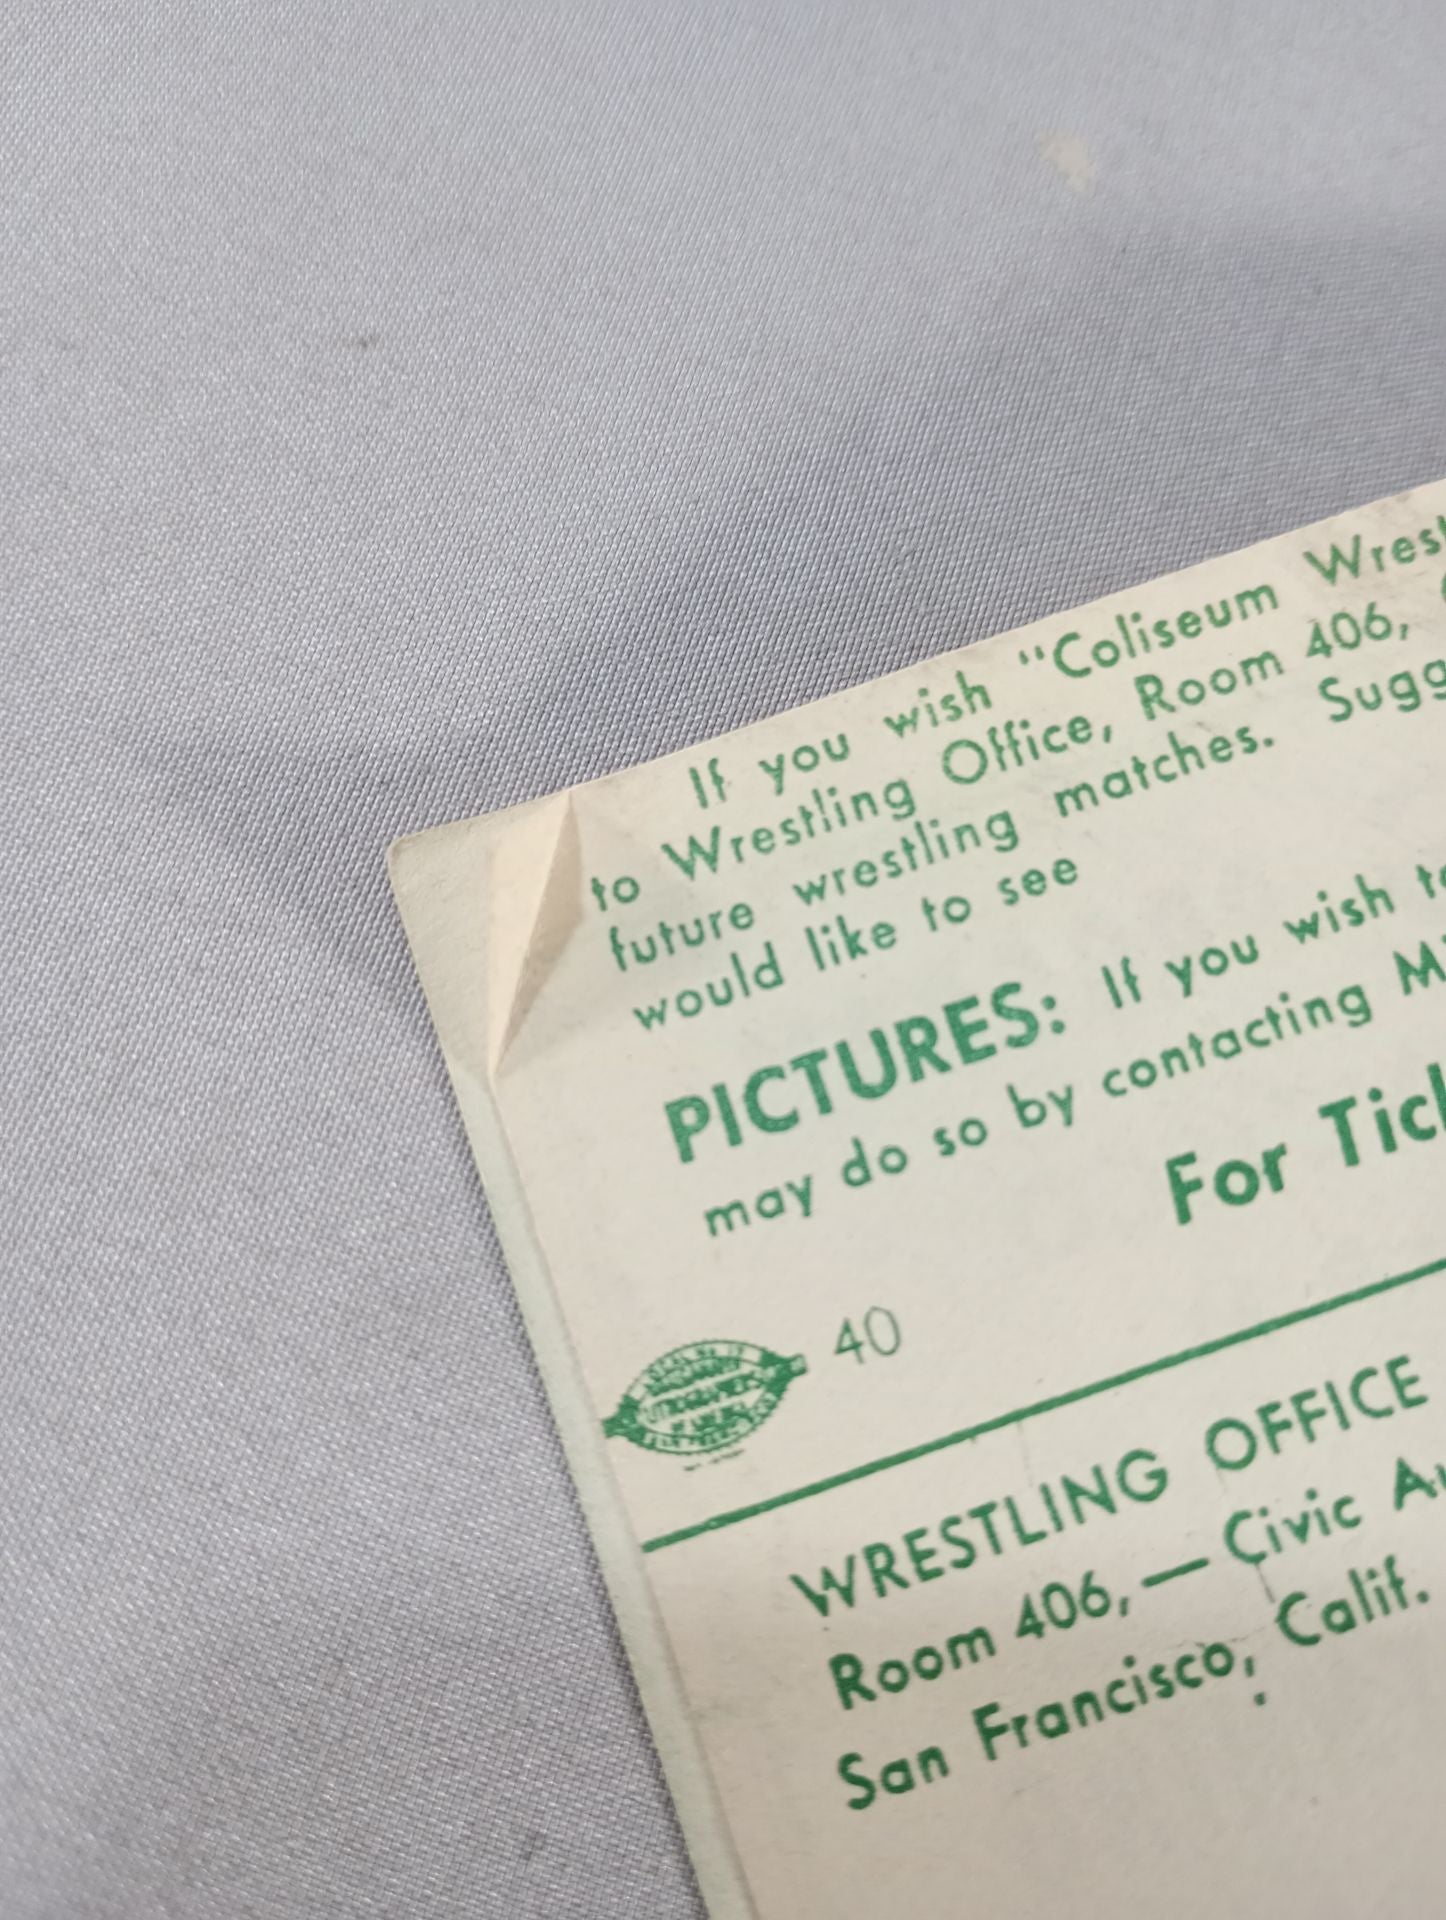 If you wish "Coliseum
to Wrestling Office, Room 406,
future wrestling matches.
would like to see
PICTURES: If you wish
may do so by contacting
For
40
WRESTLING OFFICE
Room 406, — Civic
San Francisco, Calif.